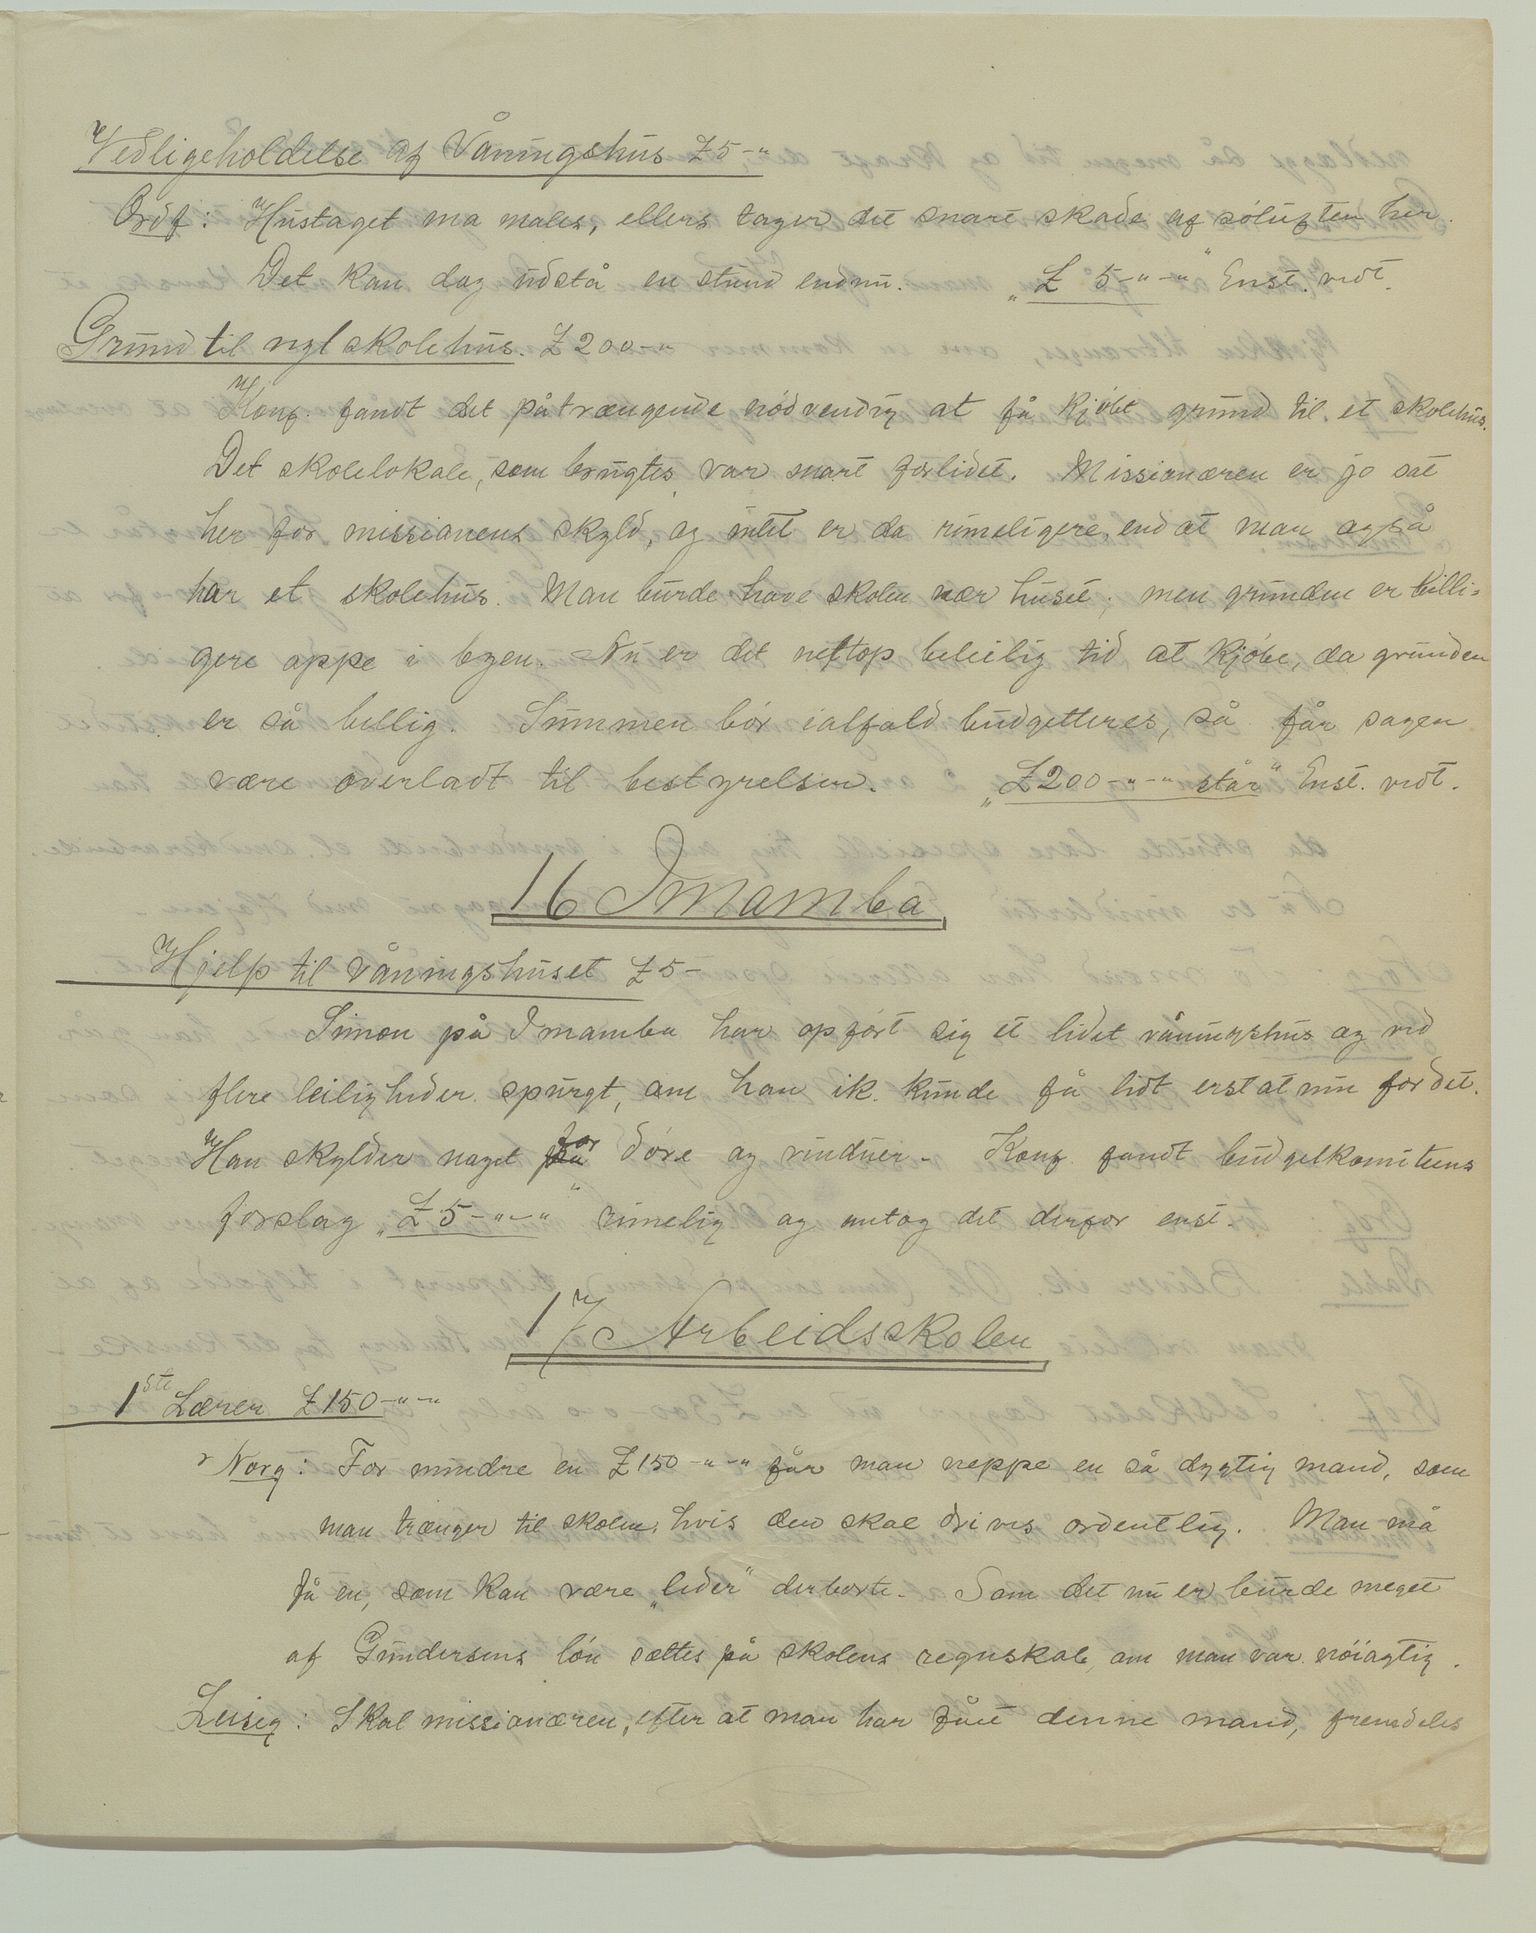 Vedligeholdelse af Våningshus £5-"
Ordf: Hustaget ma males, ellers tager det snart skade af sóluften her.
Det kan dog udstå en stund endnu. „£ 5-"-" Enst. vedt.
Grund til nyt skolehus. £200-"
Konf. fandt det påtrængende nódvendig at få kjóbt grund til et skolehus.
Det skolelokale, som brugtes var snart forlidet. Missionæren er jo sat
her for missionens skyld, og intet er da rimeligere, end at man også
har et skolehus. Man burde have skolen nær huset; men grunden er billi=
gere oppe i byen. Nu er det nettop beleilig tid at kjóbe, da grunden
er så billig. Summen bór ialfald budgetteres, så får sagen
være overladt til bestyrelsen. „£200-"-" står" Enst. vedt.
16 Imamba
Hjelp til våningshuset £5-
Simon på Imamba har opfórt sig et lidet våningshus og ved
flere leiligheder spurgt, om han ik. kunde få lidt erstatnin for det.
Han skylder noget for dóre og vinduer- Konf. fandt budgetkomiteens
forslag „£5-"-" rimelig og antog det derfor enst.
17 Arbeidsskolen
1ste Lærer £150-"-"
Norg: For mindre en £150-"-" får man neppe en så dygtig mand, som
man trænger til skolen, hvis den skal drives ordentlig. Man må
få en, som kan være „leder" derborte. Som det nu er burde meget
af Gundersens lón sættes på skolens regnskab, om man var nóiagtig.
Leisig: Skal missionæren, efter at man har fået denne mand, fremdeles